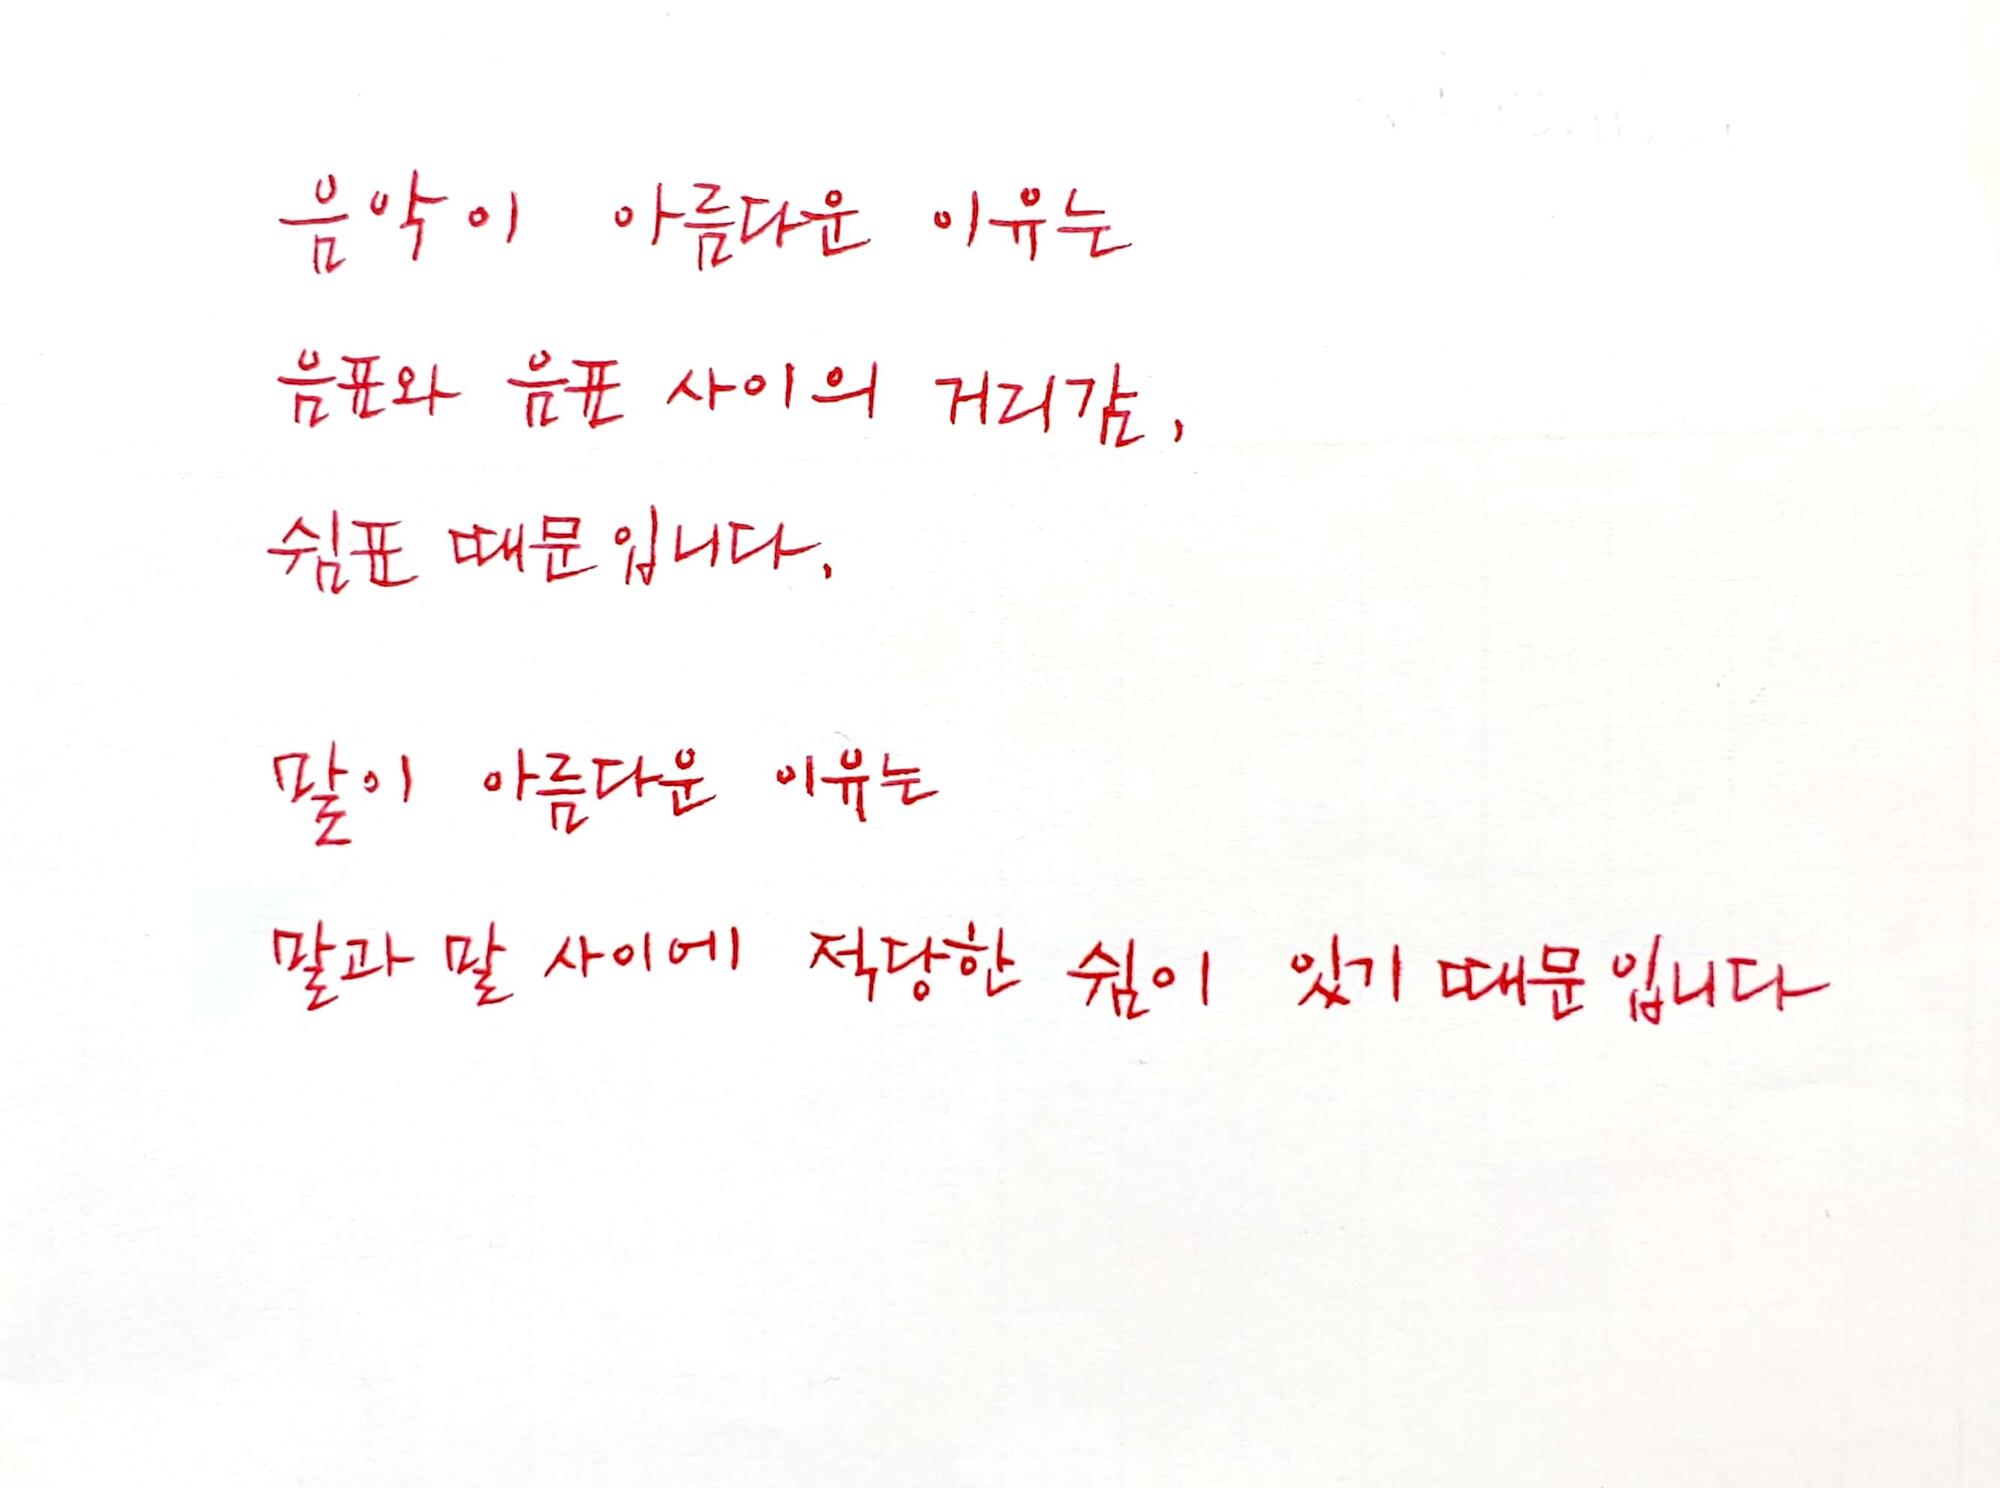 음악이 아름다운 이유는
음표와 음표 사이의 거리감,
쉼표 때문입니다.
말이 아름다운 이유는
말과 말 사이에 적당한 쉼이 있기 때문입니다